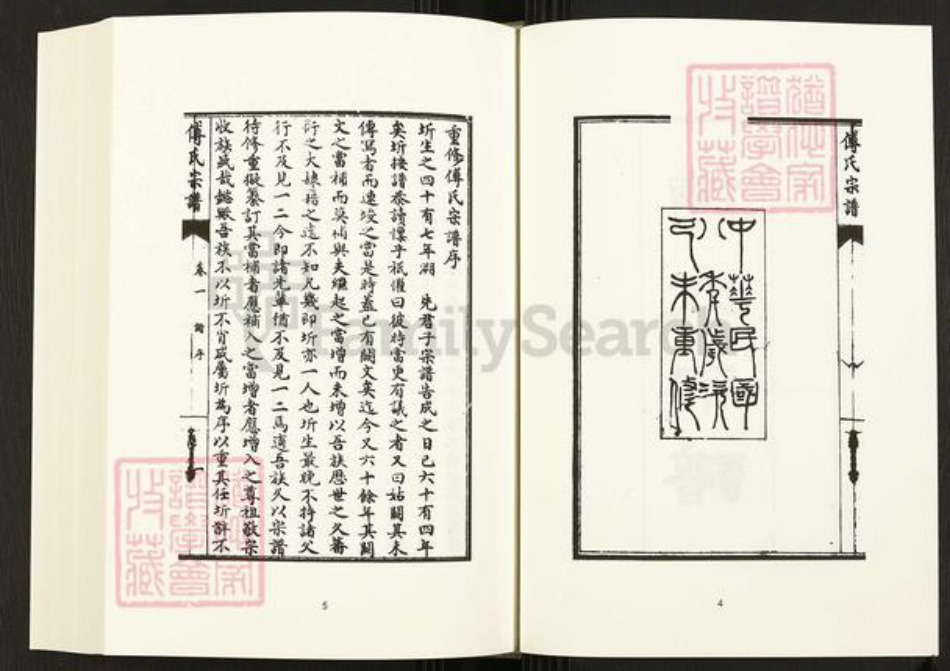 傅氏宗譜
中華民國
辛未重修
4
FamilySearch
重修傅氏宗譜序
圻生之四十有七年溯 先君子宗譜告成之日已六十有四年
矣圻接譜恭讀懍乎祗懼曰彼時當更有議之者又曰姑闕其未
傳寫者而速竣之當是時蓋已有闕文矣迄今又六十餘年其闕
文之當補而莫補與夫繼起之當增而未增以吾族歷世之久蕃
衍之大 之遠不知凡幾即圻亦一人也圻生最晚不特諸父
行不及見一二今即諸先輩 不及見一二焉 吾族久以宗譜
待修重 纂訂其當補者應補入之當增者應增入之尊祖敬宗
收族 哉 歟吾族不以圻不肖咸屬圻為序以重其任圻辭不
傅氏宗譜
卷一
譜序
5
譜學會
收藏
譜學會
收藏